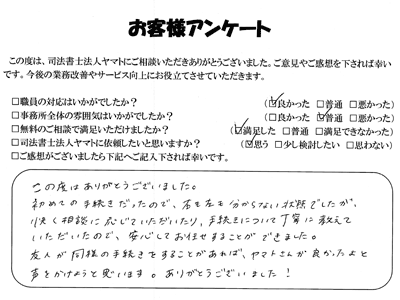 お客様アンケート
この度は、司法書士法人ヤマトにご相談いただきありがとうございました。ご意見やご感想を下されば幸い
です。今後の業務改善やサービス向上にお役立てさせていただきます。
□職員の対応はいかがでしたか? (☑良かった □普通 □悪かった)
□事務所全体の雰囲気はいかがでしたか? (□良かった ☑普通 □悪かった)
□無料のご相談で満足いただけましたか? (☑満足した □普通 □満足できなかった)
□司法書士法人ヤマトに依頼したいと思いますか? (☑思う □少し検討したい □思わない)
□ご感想がございましたら下記へご記入下されば幸いです。
この度はありがとうございました。
初めての手続きだったので、右も左も分からない状態でしたが、
快く相談に応じていただいたり、手続きについて丁寧に教えて
いただいたので、安心してお任せすることができました。
友人が同様の手続きをすることがあれば、ヤマトさんが良かったよと
声をかけようと思います。ありがとうございました!